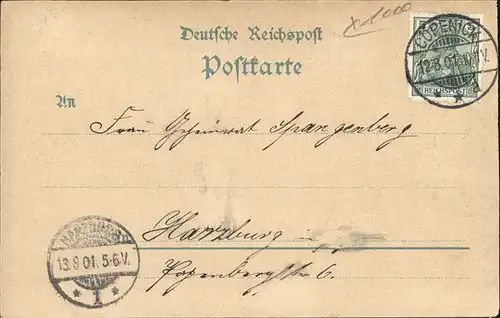 x-1000
Deutsche Reichspost
Postkarte
CÖPENICK
12.8.01.
REICHSPOST
An
Frau Geheimrat Spangenberg
Harzburg
HARZBURG
13.8.01. 5-6V.
* 1 *
Papenbergstr. 6.